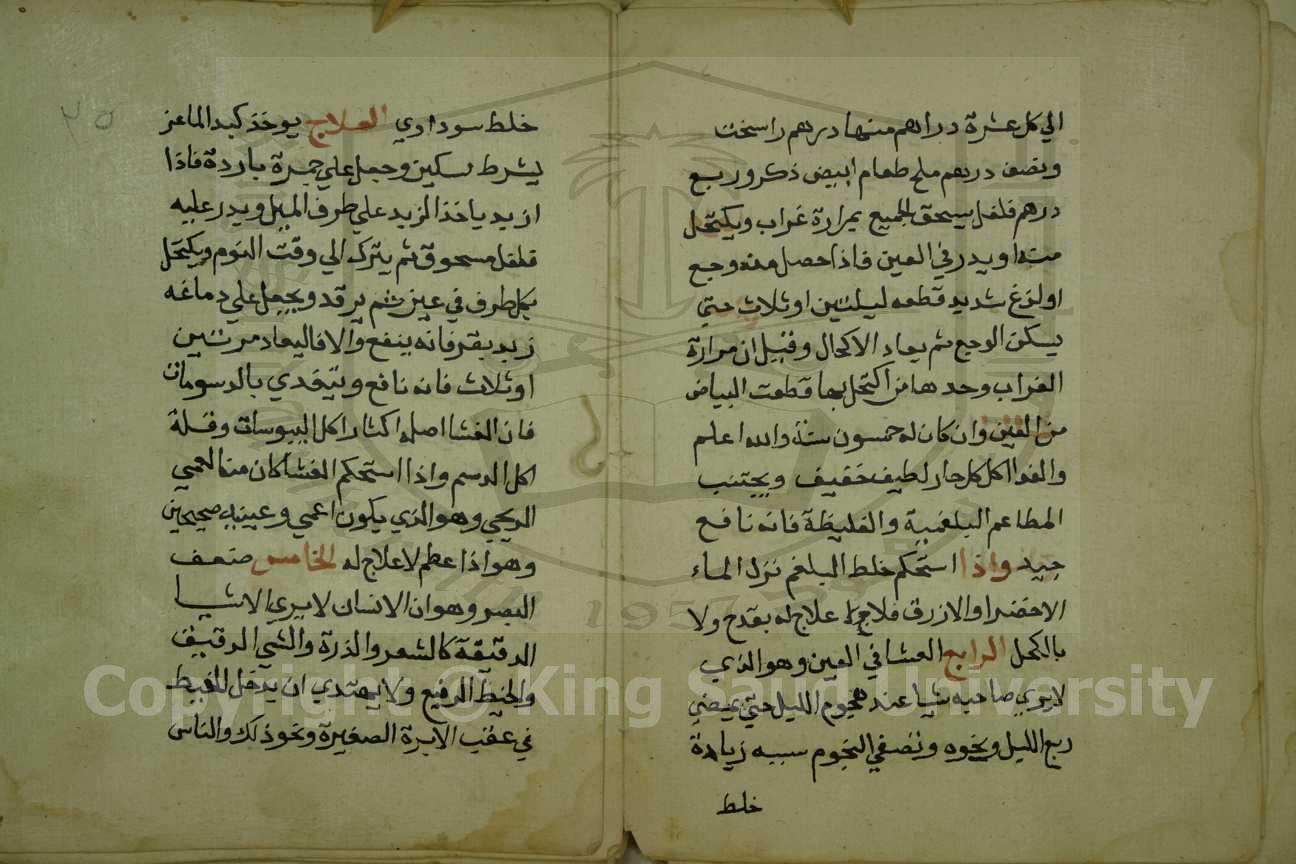 الي كل عشرة دراهم منها درهم راسخت
ونصف درهم ملح طعام ابيض ذكر وربع
درهم فلفل يسحق الجميع بمرارة غراب ويكتحل
منه او يدر في العين فاذا حصل منه وجع
او لزغ شديد قطعه ليلتين او ثلاث حتي
يسكن الوجع ثم يعاد الاكحال وقيل ان مرارة
الغراب وحدها من اكتحل بها قطعت البياض
من العين وان كان له خمسون سنة والله اعلم
والغدا اكل كل حار لطيف خفيف ويجتنب
المطاعم البلغمية والغليظة فانه نافع
جيد واذا استحكم خلط البلغم نزل الماء
الاخضر او الازرق فلا علاج له بقدح ولا
بالكحل الرابع العشا في العين وهو الذي
لا يري صاحبه شيا عند هجوم الليل حتي يمضي
ربع الليل ونحوه ونصفي النجوم سببه زيادة
خلط
٢٥
خلط سوداوي العلاج يوخذ كبد الماعز
يشرط بسكين وجعل علي جمرة باردة فاذا
ازبد ياخذ الزبد علي طرف الميل ويدر عليه
فلفل مسحوق ثم يتركه الي وقت النوم ويكتحل
بكل طرف في عين ثم يرقد ويجعل علي دماغه
زبد بقر فانه ينفع والا فاليعاد مرتين
او ثلاث فانه نافع ويتغدي بالدسومات
فان الغشا اصله اكثار اكل اليبوسات وقلة
اكل الدسم واذا استحكم الغشا كان منه العمي
الريحي وهو الذي يكون اعمي وعينيه صحيحين
وهو اذا عظم لا علاج له الخامس ضعف
البصر وهو ان الانسان لا يري الاشيا
الدقيقة كالشعر والذرة والشي الدقيق
والخيط الرفيع ولا يهتدي ان يدخل الخيط
في عقب الابرة الصغيرة ونحو ذلك والناس
Copyright © King Saud University
1957